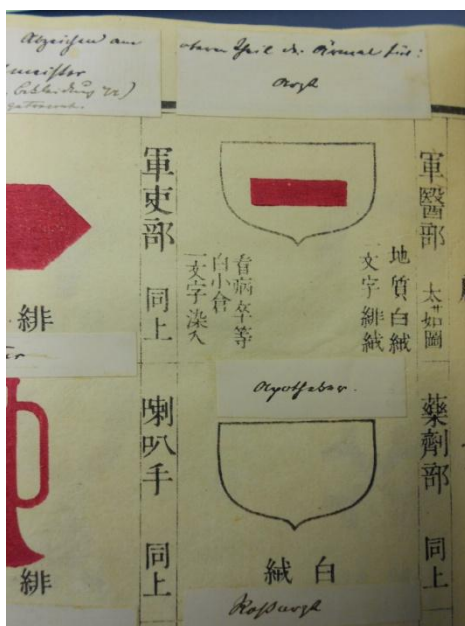 Abzeichen am
obern Theil der Ärmel für:
Arzt
meister
軍醫部 太サ如圖
地質白絨
一文字緋絨
看病卒等
白小倉
一文字染入
軍吏部 同上
緋
Apotheker.
藥劑部 同上
白絨
喇叭手 同上
緋
Roßarzt